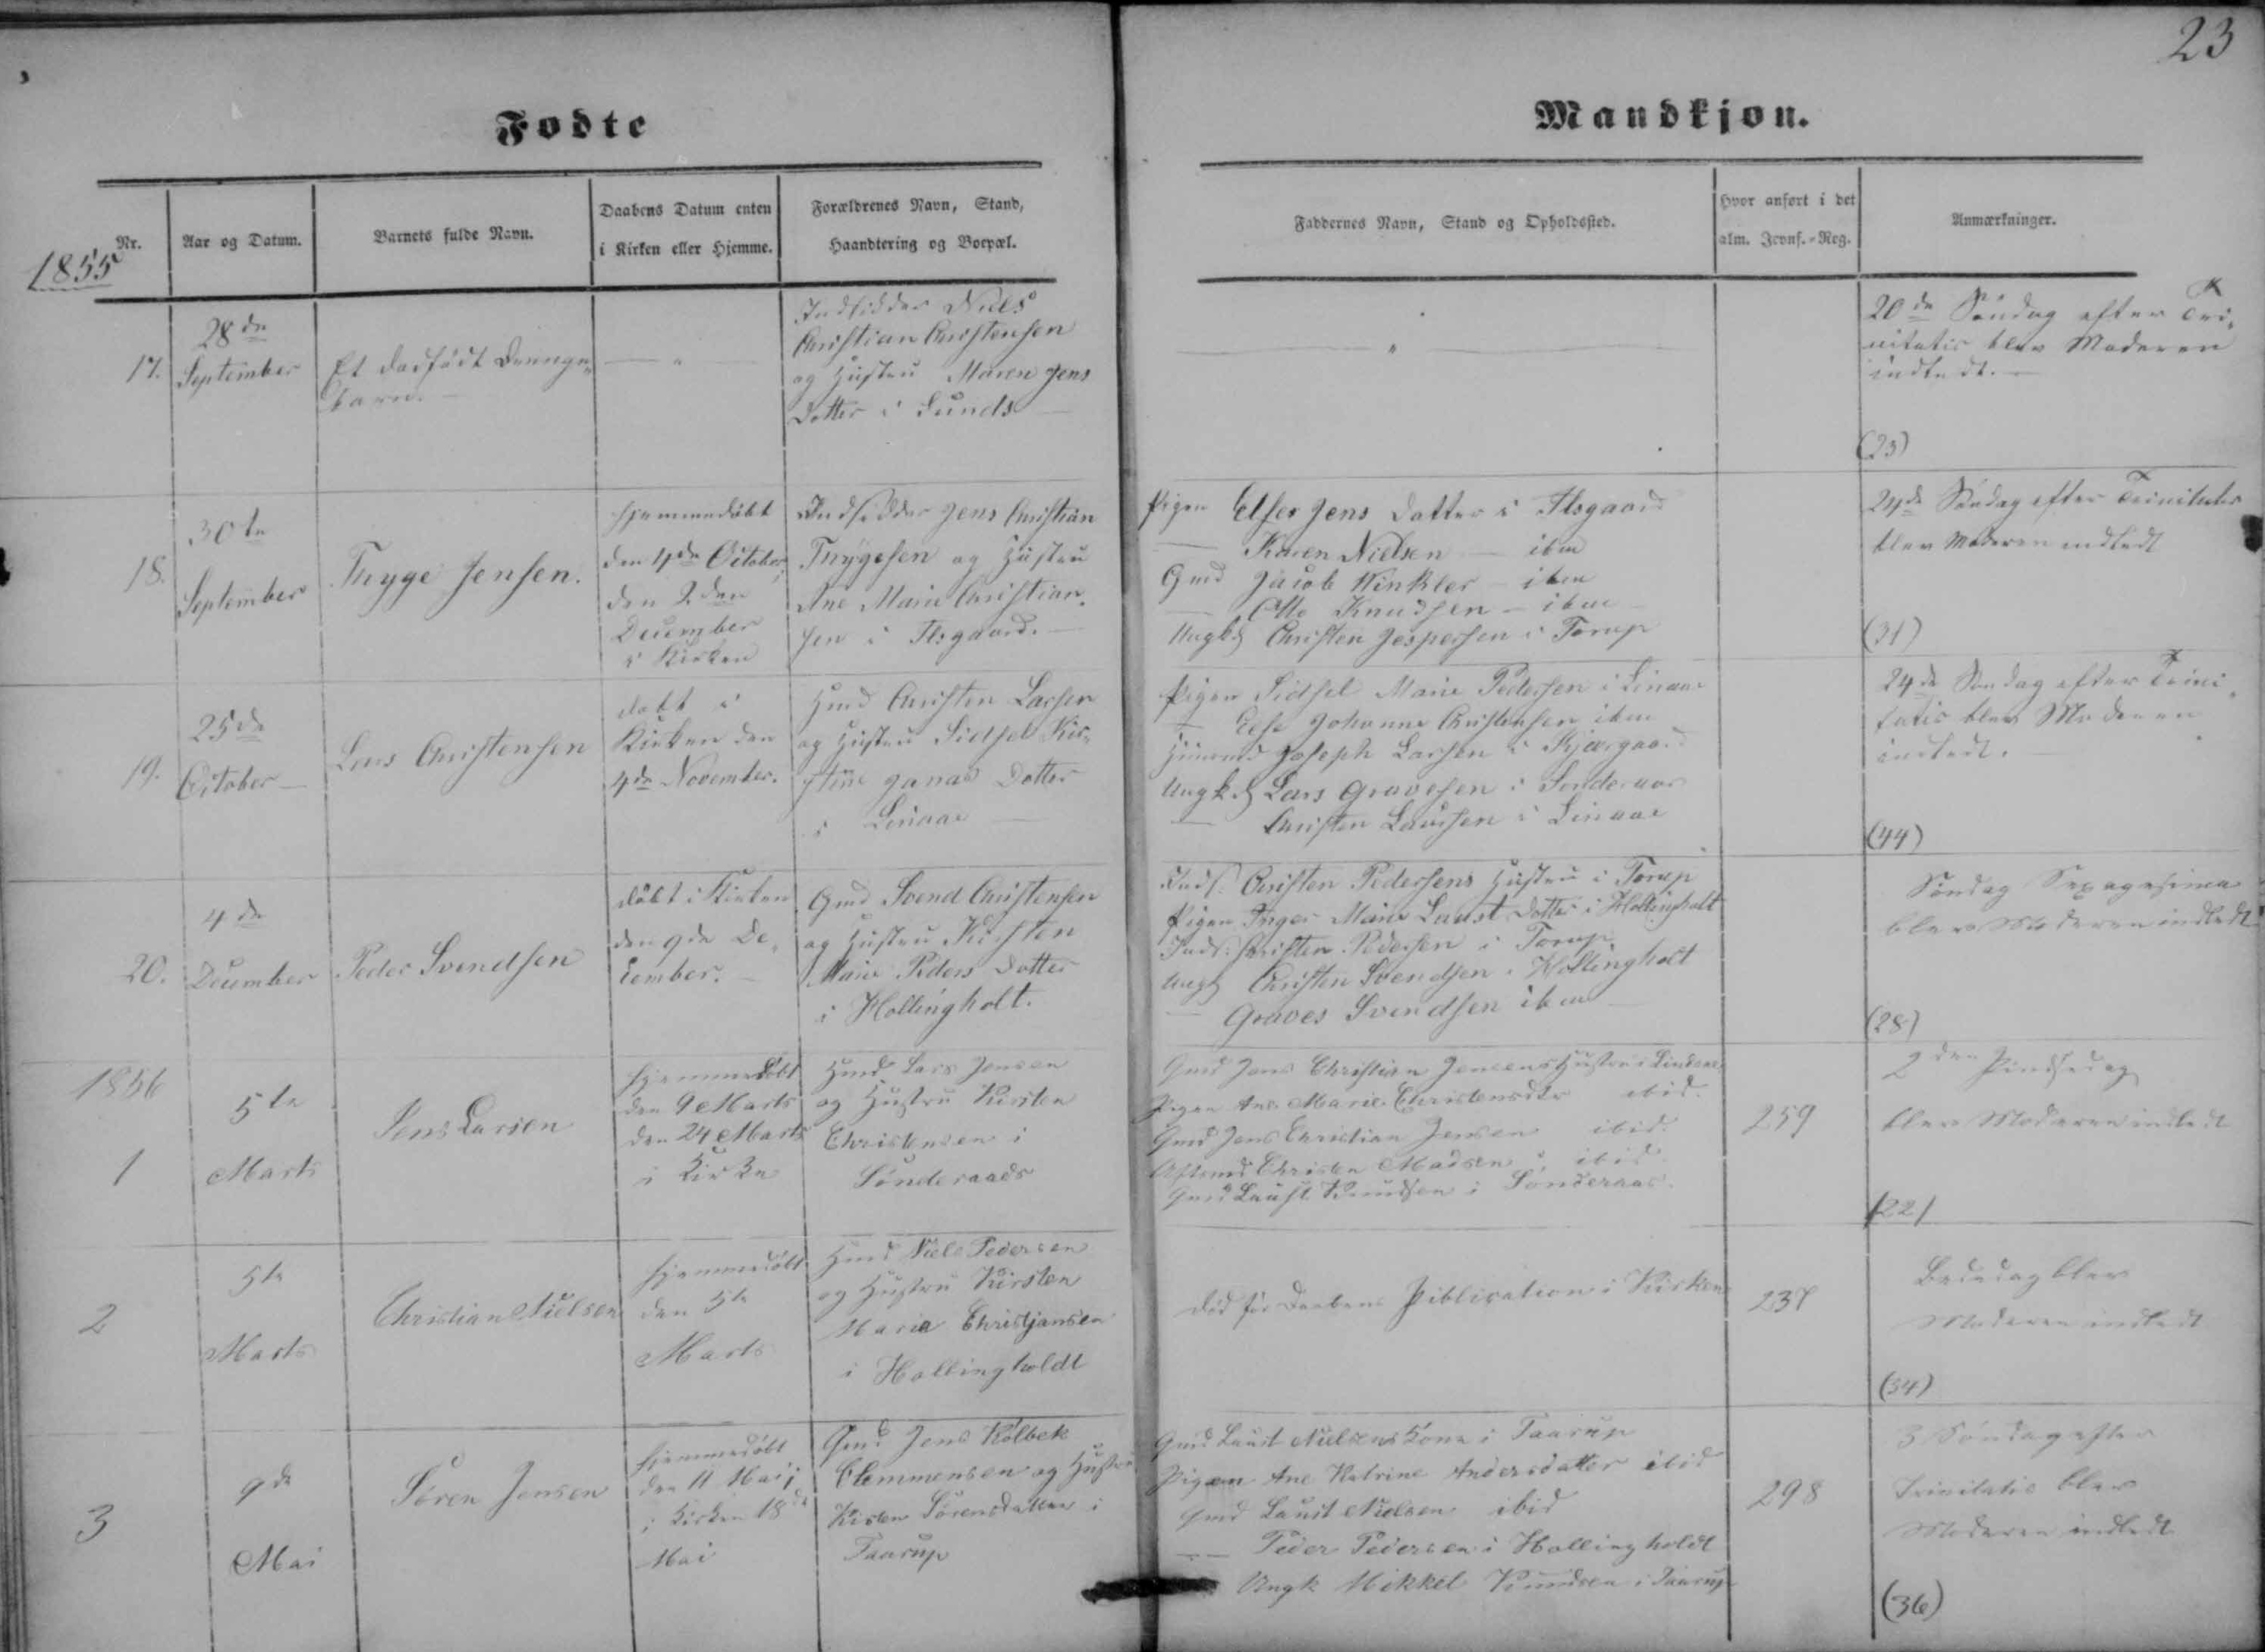 23
Fødte
Mandkjøn.
Nr.
Aar og Datum.
Barnets fulde Navn.
Daabens Datum enten
i Kirken eller Hjemme.
Forældrenes Navn, Stand,
Haandtering og Boepæl.
Faddernes Navn, Stand og Opholdssted.
Hvor anført i det
alm. Jevnf.-Reg.
Anmærkninger.
1855
17.
28de
September
Et dødfødt Drenge„
barn. —
— „ —
Indsidder Niels
Christian Christensen
og Hustru Maren Jens
Datter i Lunds —
— „ —
20de Søndag efter Tri„
nitatis blev Moderen
indledt. —
(23)
18.
30te
September
Thyge Jensen.
hjemmedøbt
den 4de October,
den 2den
December
i Kirken
Indsidder Jens Christian
Thygesen og Hustru
Ane Marie Christian„
sen i Ilsgaard. —
Pigen Elser Jens Datter i Ilsgaard
— Karen Nielsen — ibm
Gmd Jacob Winkler — ibm
— Otto Knudsen — ibm —
Ungk Christen Jespersen i Torup
24de Søndag efter Trinitatis
blev Moderen indledt
(31)
19.
25de
October —
Lars Christensen
døbt i
Kirken den
4de November.
Hmd Christen Larsen
og Hustru Sidsel Kir„
stine Datter
i Linaae —
Pigen Sidsel Marie Pedersen i Linaae
— Else Johanne Christensen ibm
Joseph Larsen i Kjærgaard
Ungk Lars Gravesen i Sønderaas
— Christen Laursen i Linaae
24de Søndag efter Trini„
tatis blev Moderen
indledt.
(44)
20.
4de
December
Peder Svendsen
døbt i Kirken
den 9de De„
cember. —
Gmd Svend Christensen
og Hustru Kirsten
Marie Peders Datter
i Hollingholt.
Inds. Christen Pedersens Hustru i Torup
Pigen Inger Marie Laust Datter i Hollingholt
Inds. Christen Pedersen i Torup
Ungk Christen Svendsen i Hollingholt
— Graves Svendsen ibm —
Søndag Sexagesima
blev Moderen indledt
(28)
1856
1
5te
Marts
Jens Larsen
hjemmedøbt
den 9 Marts
den 24 Marts
i Kirken
Hmd Lars Jensen
og Hustru Kirsten
Christensen i
Sønderaads
Gmd Jens Christian Jensens Hustru i
Pigen Ane Marie Christensdtr ibid.
Gmd Jens Christian Jensen ibid.
Aftmd Christen Madsen i ibid
Gmd Laust Knudsen i Sønderaas.
259
2den Pindsedag
blev Moderen indledt
(22)
2
5te
Marts
Christian Nielsen
hjemmedøbt
den 5te
Marts
Hmd Niels Pedersen
og Hustru Kirsten
Marie Christjansen
i Hollingholdt
død før Daabens Publication i Kirken
237
Bededag blev
Moderen indledt
(34)
3
9de
Mai
Søren Jensen
hjemmedøbt
den 11 Mai;
i Kirken 18de
Mai
Gmd Jens Kølbek
Clemmensen og Hustru
Kisten Sørensdatter i
Taarup
Gmd Laust Nielsens Kone i Taarup
Pigen Ane Katrine Andersdatter ibid
Gmd Laust Nielsen ibid
— Peder Pedersen i Hollingholdt
Ungk Mikkel Knudsen i Taarup
298
3 Søndag efter
Trinitatis blev
Moderen indledt
(36)